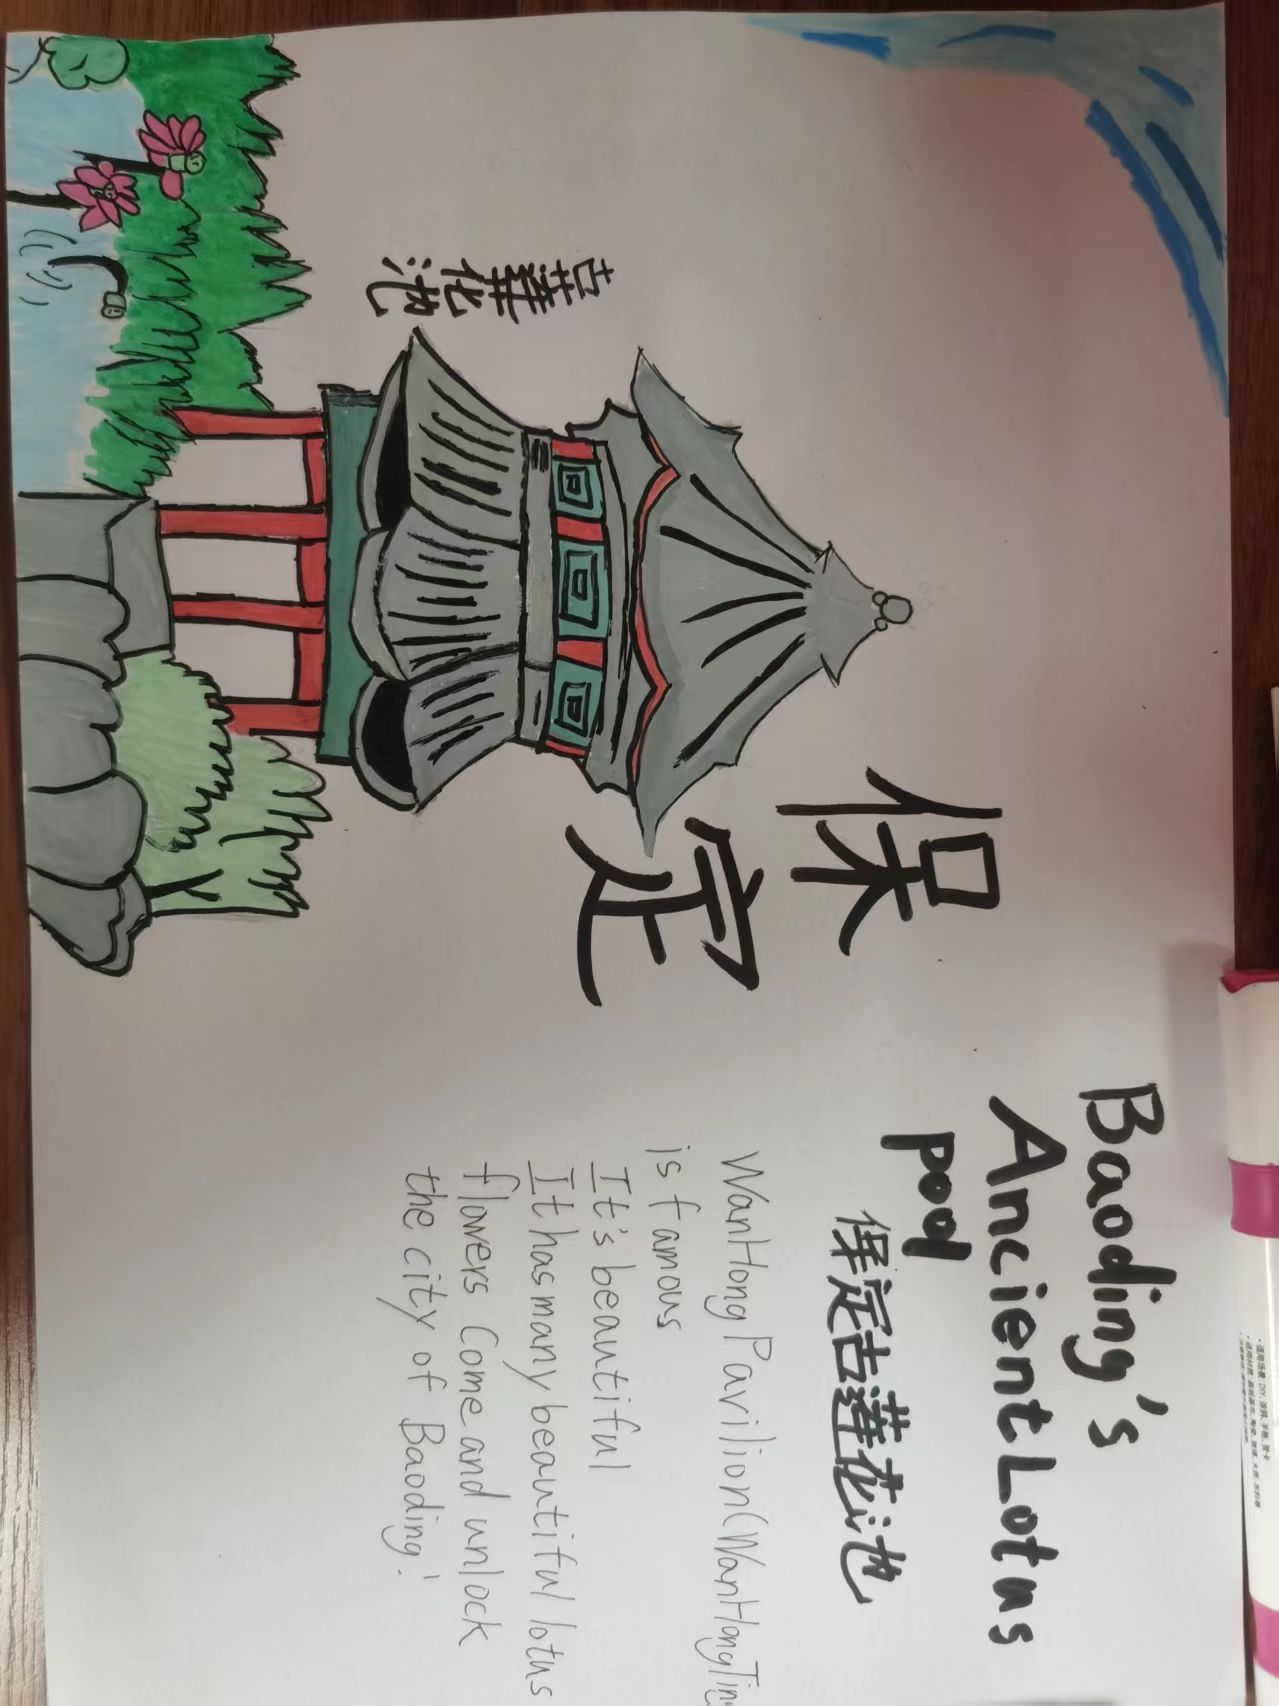 Baoding's
Ancient Lotus
pool
保定古莲花池
保
定
古
莲
花
池
WanHong Pavilion(WanHongTin
is famous
It's beautiful
It has many beautiful lotus
flowers Come and unlock
the city of Baoding!